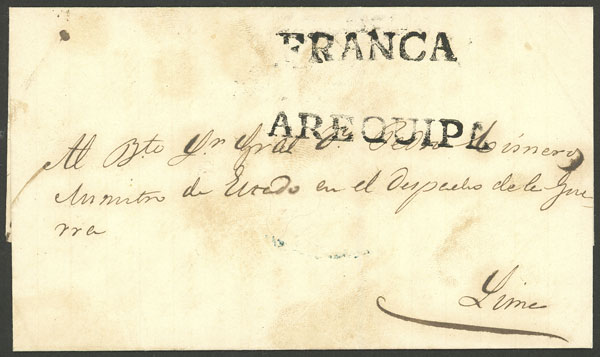 FRANCA
AREQUIPA
Al Bto Sr. Gral Dn Pedro Cisneros
Ministro de Estado en el Despacho de la Gue-
rra
Lima